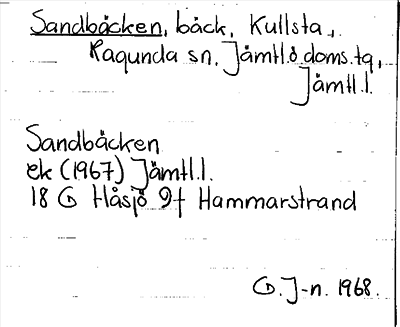 Sandbäcken, bäck, Kullsta,
Ragunda sn. Jämtl.ö.doms.tg,
Jämtl.l.
Sandbäcken
ek (1967) Jämtl.l.
18 G Håsjö 9f Hammarstrand
G. J-n. 1968.